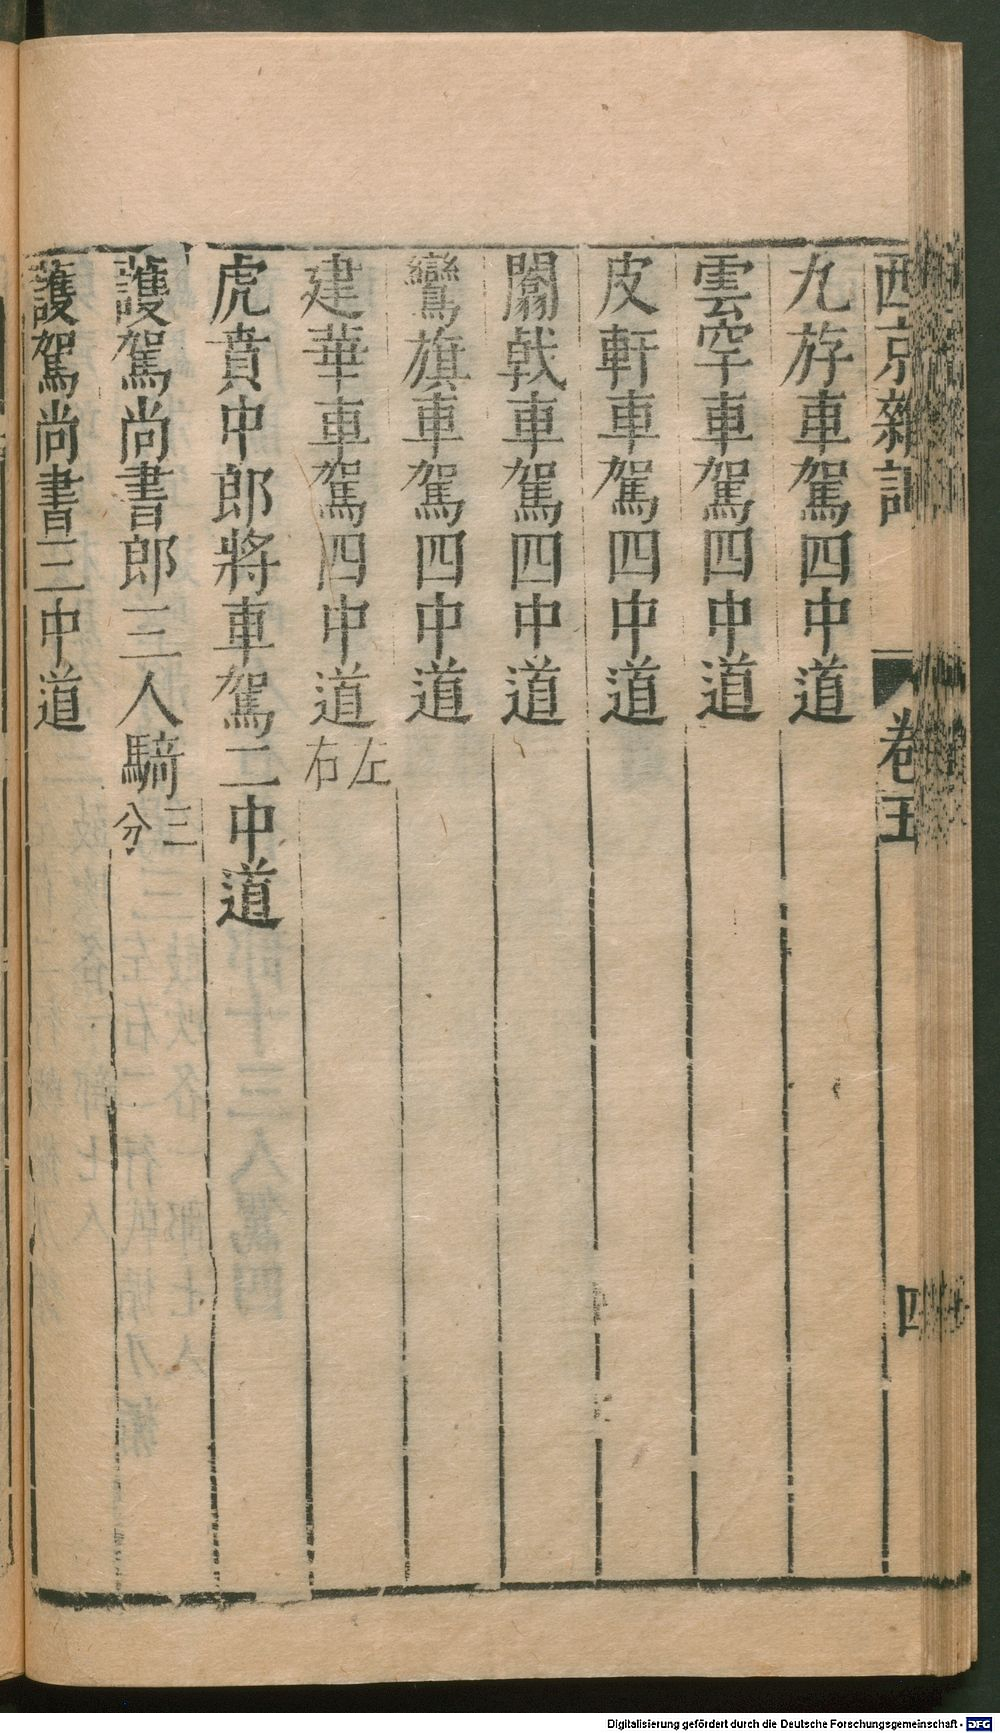 西京雜記 卷五 四
九斿車駕四中道
雲罕車駕四中道
皮軒車駕四中道
闟戟車駕四中道
鸞旗車駕四中道
建華車駕四中道左右
虎賁中郎將車駕二中道
護駕尚書郎三人騎三分
護駕尚書三中道
Digitalisierung gefördert durch die Deutsche Forschungsgemeinschaft - DFG